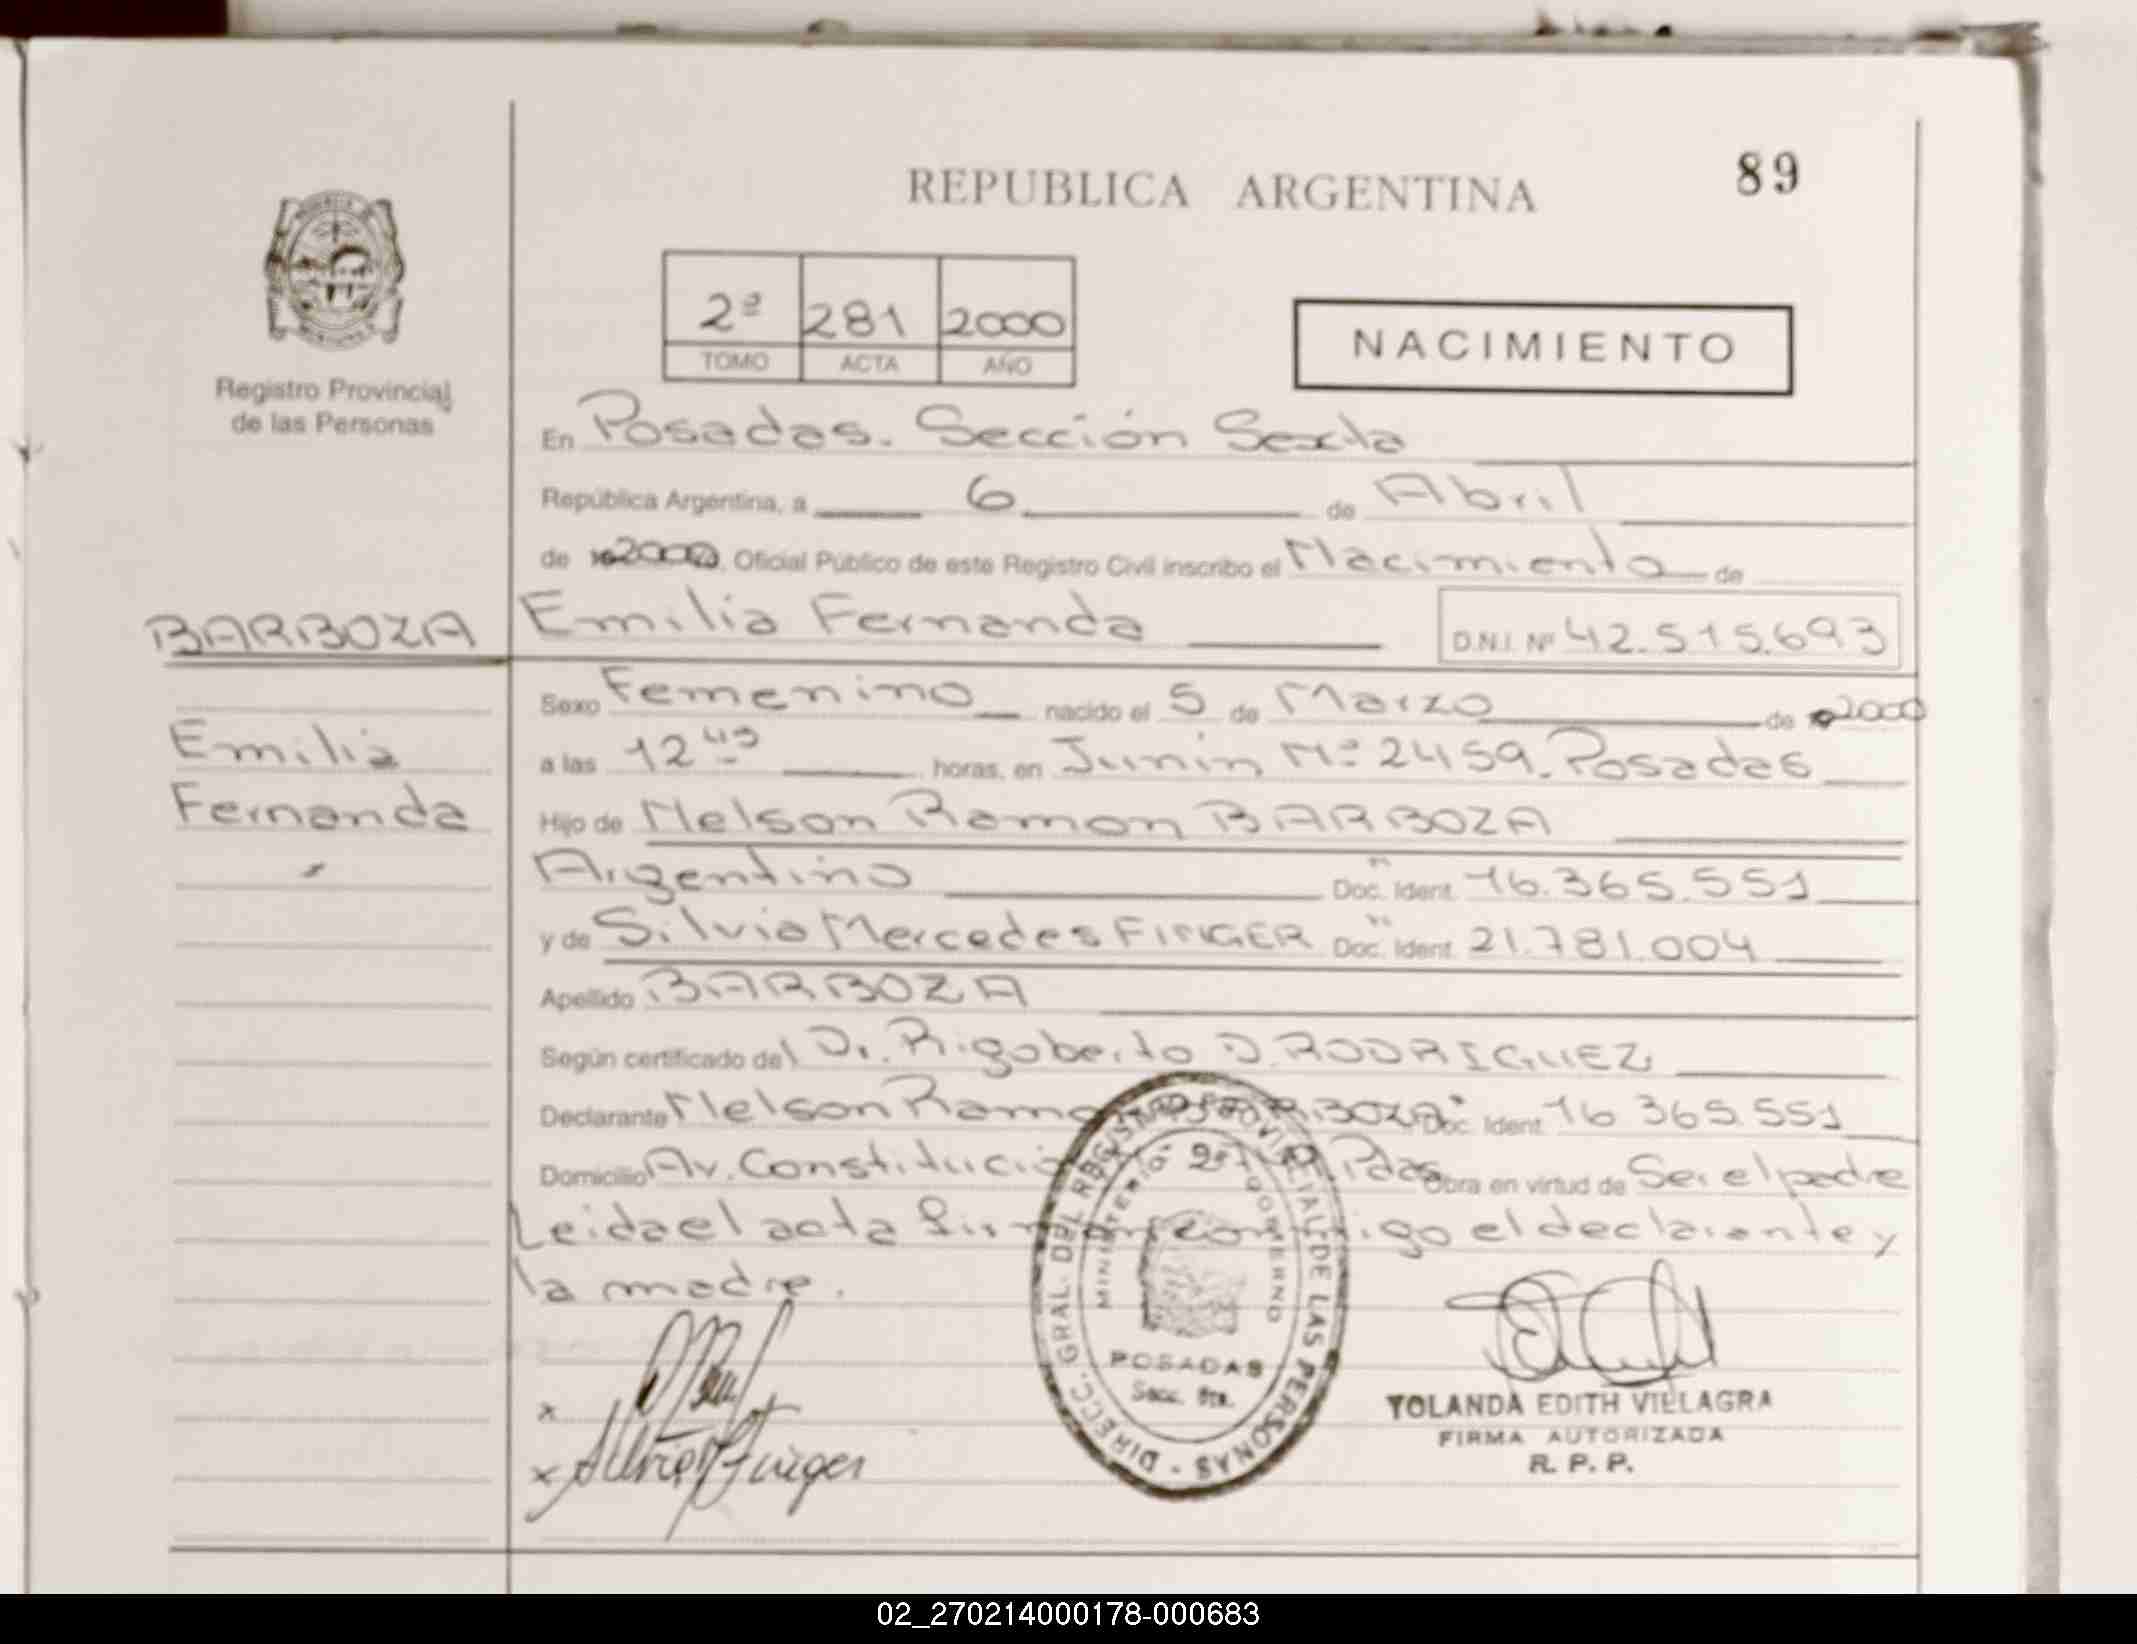 89
REPUBLICA ARGENTINA
2º 281 2000
TOMO ACTA AÑO
NACIMIENTO
Registro Provincial
de las Personas
En Posadas. Sección Sexta
República Argentina, a 6 de Abril
de 2000, Oficial Público de este Registro Civil inscribo el Nacimiento de
BARBOZA Emilia Fernanda D.N.I. Nº 42.515.693
Sexo Femenino nacido el 5 de Marzo de 2000
Emilia a las 12 45 horas, en Junín Nº 2459. Posadas
Fernanda Hijo de Nelson Ramon BARBOZA
Argentino Doc. Ident. 16.365.551
y de Silvia Mercedes FINGER Doc. Ident. 21.781.004
Apellido BARBOZA
Según certificado del Dr. Rigoberto D. RODRIGUEZ
Declarante Nelson Ramon BARBOZA Doc. Ident. 16 365.551
Domicilio Av. Constitución Pdas Obra en virtud de Ser el padre
Leida el acta firman conmigo el declarante y
la madre.
DIRECC. GRAL. DEL REGISTRO PROVINCIAL DE LAS PERSONAS
MINISTERIO DE GOBIERNO
POSADAS
Secc. 6ta.
x
x
YOLANDA EDITH VILLAGRA
FIRMA AUTORIZADA
R. P. P.
02_270214000178-000683